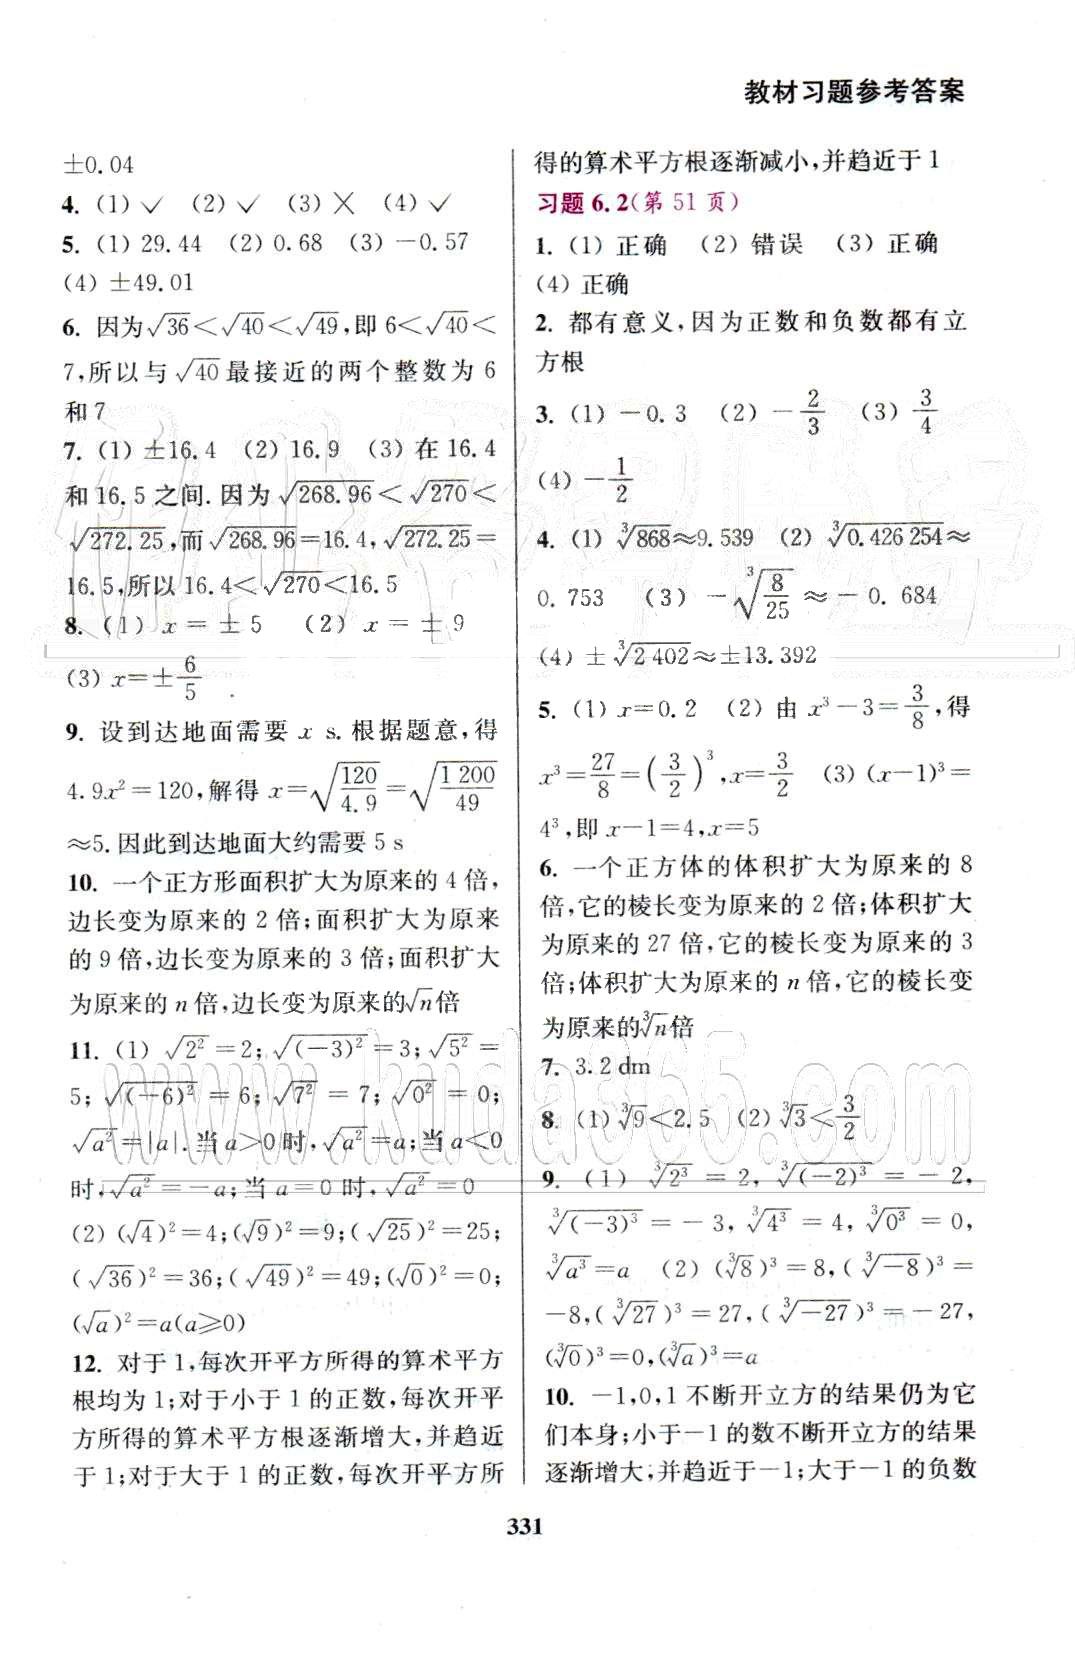 教材习题参考答案
±0.04
4. (1)✓ (2)✓ (3)╳ (4)✓
5. (1)29.44 (2)0.68 (3)-0.57
(4)±49.01
6. 因为√36<√40<√49,即6<√40<
7,所以与√40最接近的两个整数为6
和7
7. (1)±16.4 (2)16.9 (3)在16.4
和16.5之间.因为√268.96<√270<
√272.25,而√268.96=16.4,√272.25=
16.5,所以16.4<√270<16.5
8. (1)x=±5 (2)x=±9
(3)x=±6/5
9. 设到达地面需要 x s.根据题意,得
4.9x²=120,解得 x=√(120/4.9)=√(1 200/49)
≈5.因此到达地面大约需要5 s
10. 一个正方形面积扩大为原来的4倍,
边长变为原来的2倍;面积扩大为原来
的9倍,边长变为原来的3倍;面积扩大
为原来的n倍,边长变为原来的√n倍
11. (1)√2²=2;√(-3)²=3;√5²=
5;√(-6)²=6;√7²=7;√0²=0;
√a²=|a|.当a>0时,√a²=a;当a<0
时,√a²=-a;当a=0时,√a²=0
(2)(√4)²=4;(√9)²=9;(√25)²=25;
(√36)²=36;(√49)²=49;(√0)²=0;
(√a)²=a(a≥0)
12. 对于1,每次开平方所得的算术平方
根均为1;对于小于1的正数,每次开平
方所得的算术平方根逐渐增大,并趋近
于1;对于大于1的正数,每次开平方所
得的算术平方根逐渐减小,并趋近于1
习题6.2(第51页)
1. (1)正确 (2)错误 (3)正确
(4)正确
2. 都有意义,因为正数和负数都有立
方根
3. (1)-0.3 (2)-2/3 (3)3/4
(4)-1/2
4. (1)∛868≈9.539 (2)∛0.426 254≈
0.753 (3)-∛(8/25)≈-0.684
(4)±∛2 402≈±13.392
5. (1)x=0.2 (2)由x³-3=3/8,得
x³=27/8=(3/2)³,x=3/2 (3)(x-1)³=
4³,即x-1=4,x=5
6. 一个正方体的体积扩大为原来的8
倍,它的棱长变为原来的2倍;体积扩大
为原来的27倍,它的棱长变为原来的3
倍;体积扩大为原来的n倍,它的棱长变
为原来的∛n倍
7. 3.2 dm
8. (1)∛9<2.5 (2)∛3<3/2
9. (1)∛2³=2,∛(-2)³=-2,
∛(-3)³=-3,∛4³=4,∛0³=0,
∛a³=a (2)(∛8)³=8,(∛-8)³=
-8,(∛27)³=27,(∛-27)³=-27,
(∛0)³=0,(∛a)³=a
10. -1,0,1不断开立方的结果仍为它
们本身;小于-1的数不断开立方的结果
逐渐增大,并趋近于-1;大于-1的负数
331
www.kuda365.com